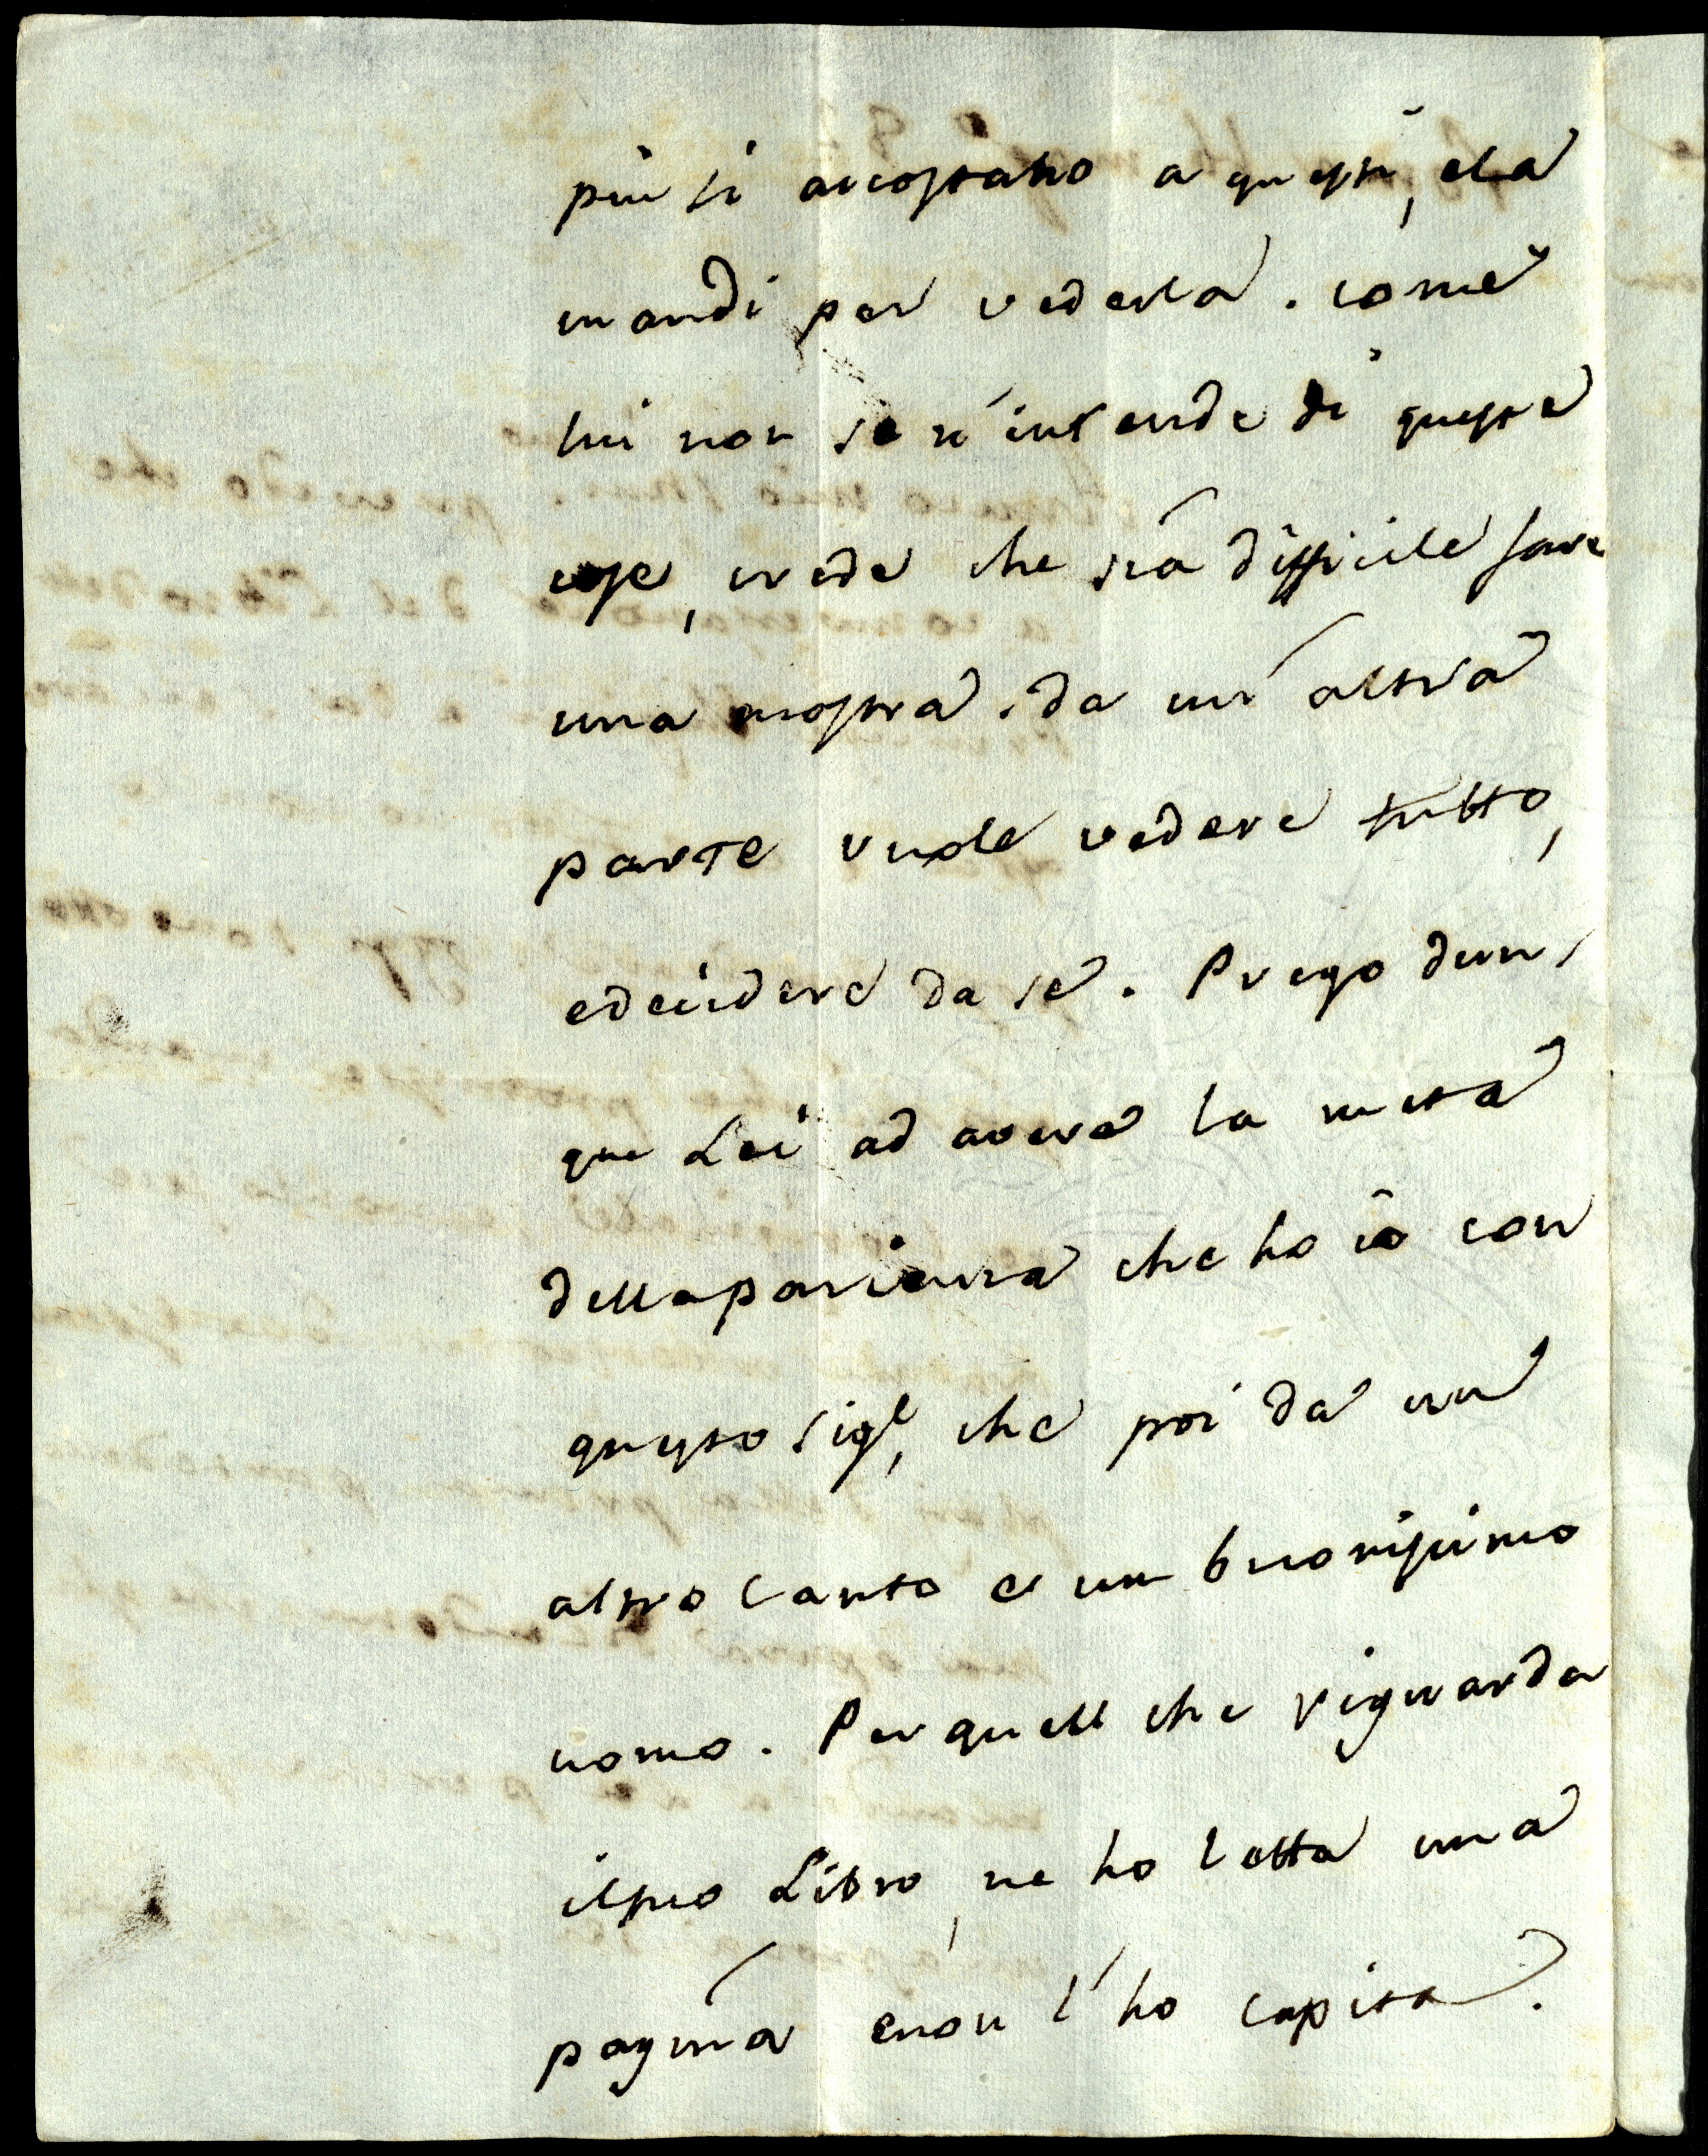 piu si accostano a questi, e la
mandi per vederla. come
lui non se n'intende di queste
cose, crede che sia difficile fare
una mostra. da un'altra
parte vuole vedere tutto,
e decidere da se. Prego dun-
que Lei ad avere la metà
della pacienza che ho io con
questo Sigr, che poi da un
altro canto e un buonissimo
uomo. Per quell che riguarda
il suo Libro, ne ho letta una
pagina e non l'ho capita.